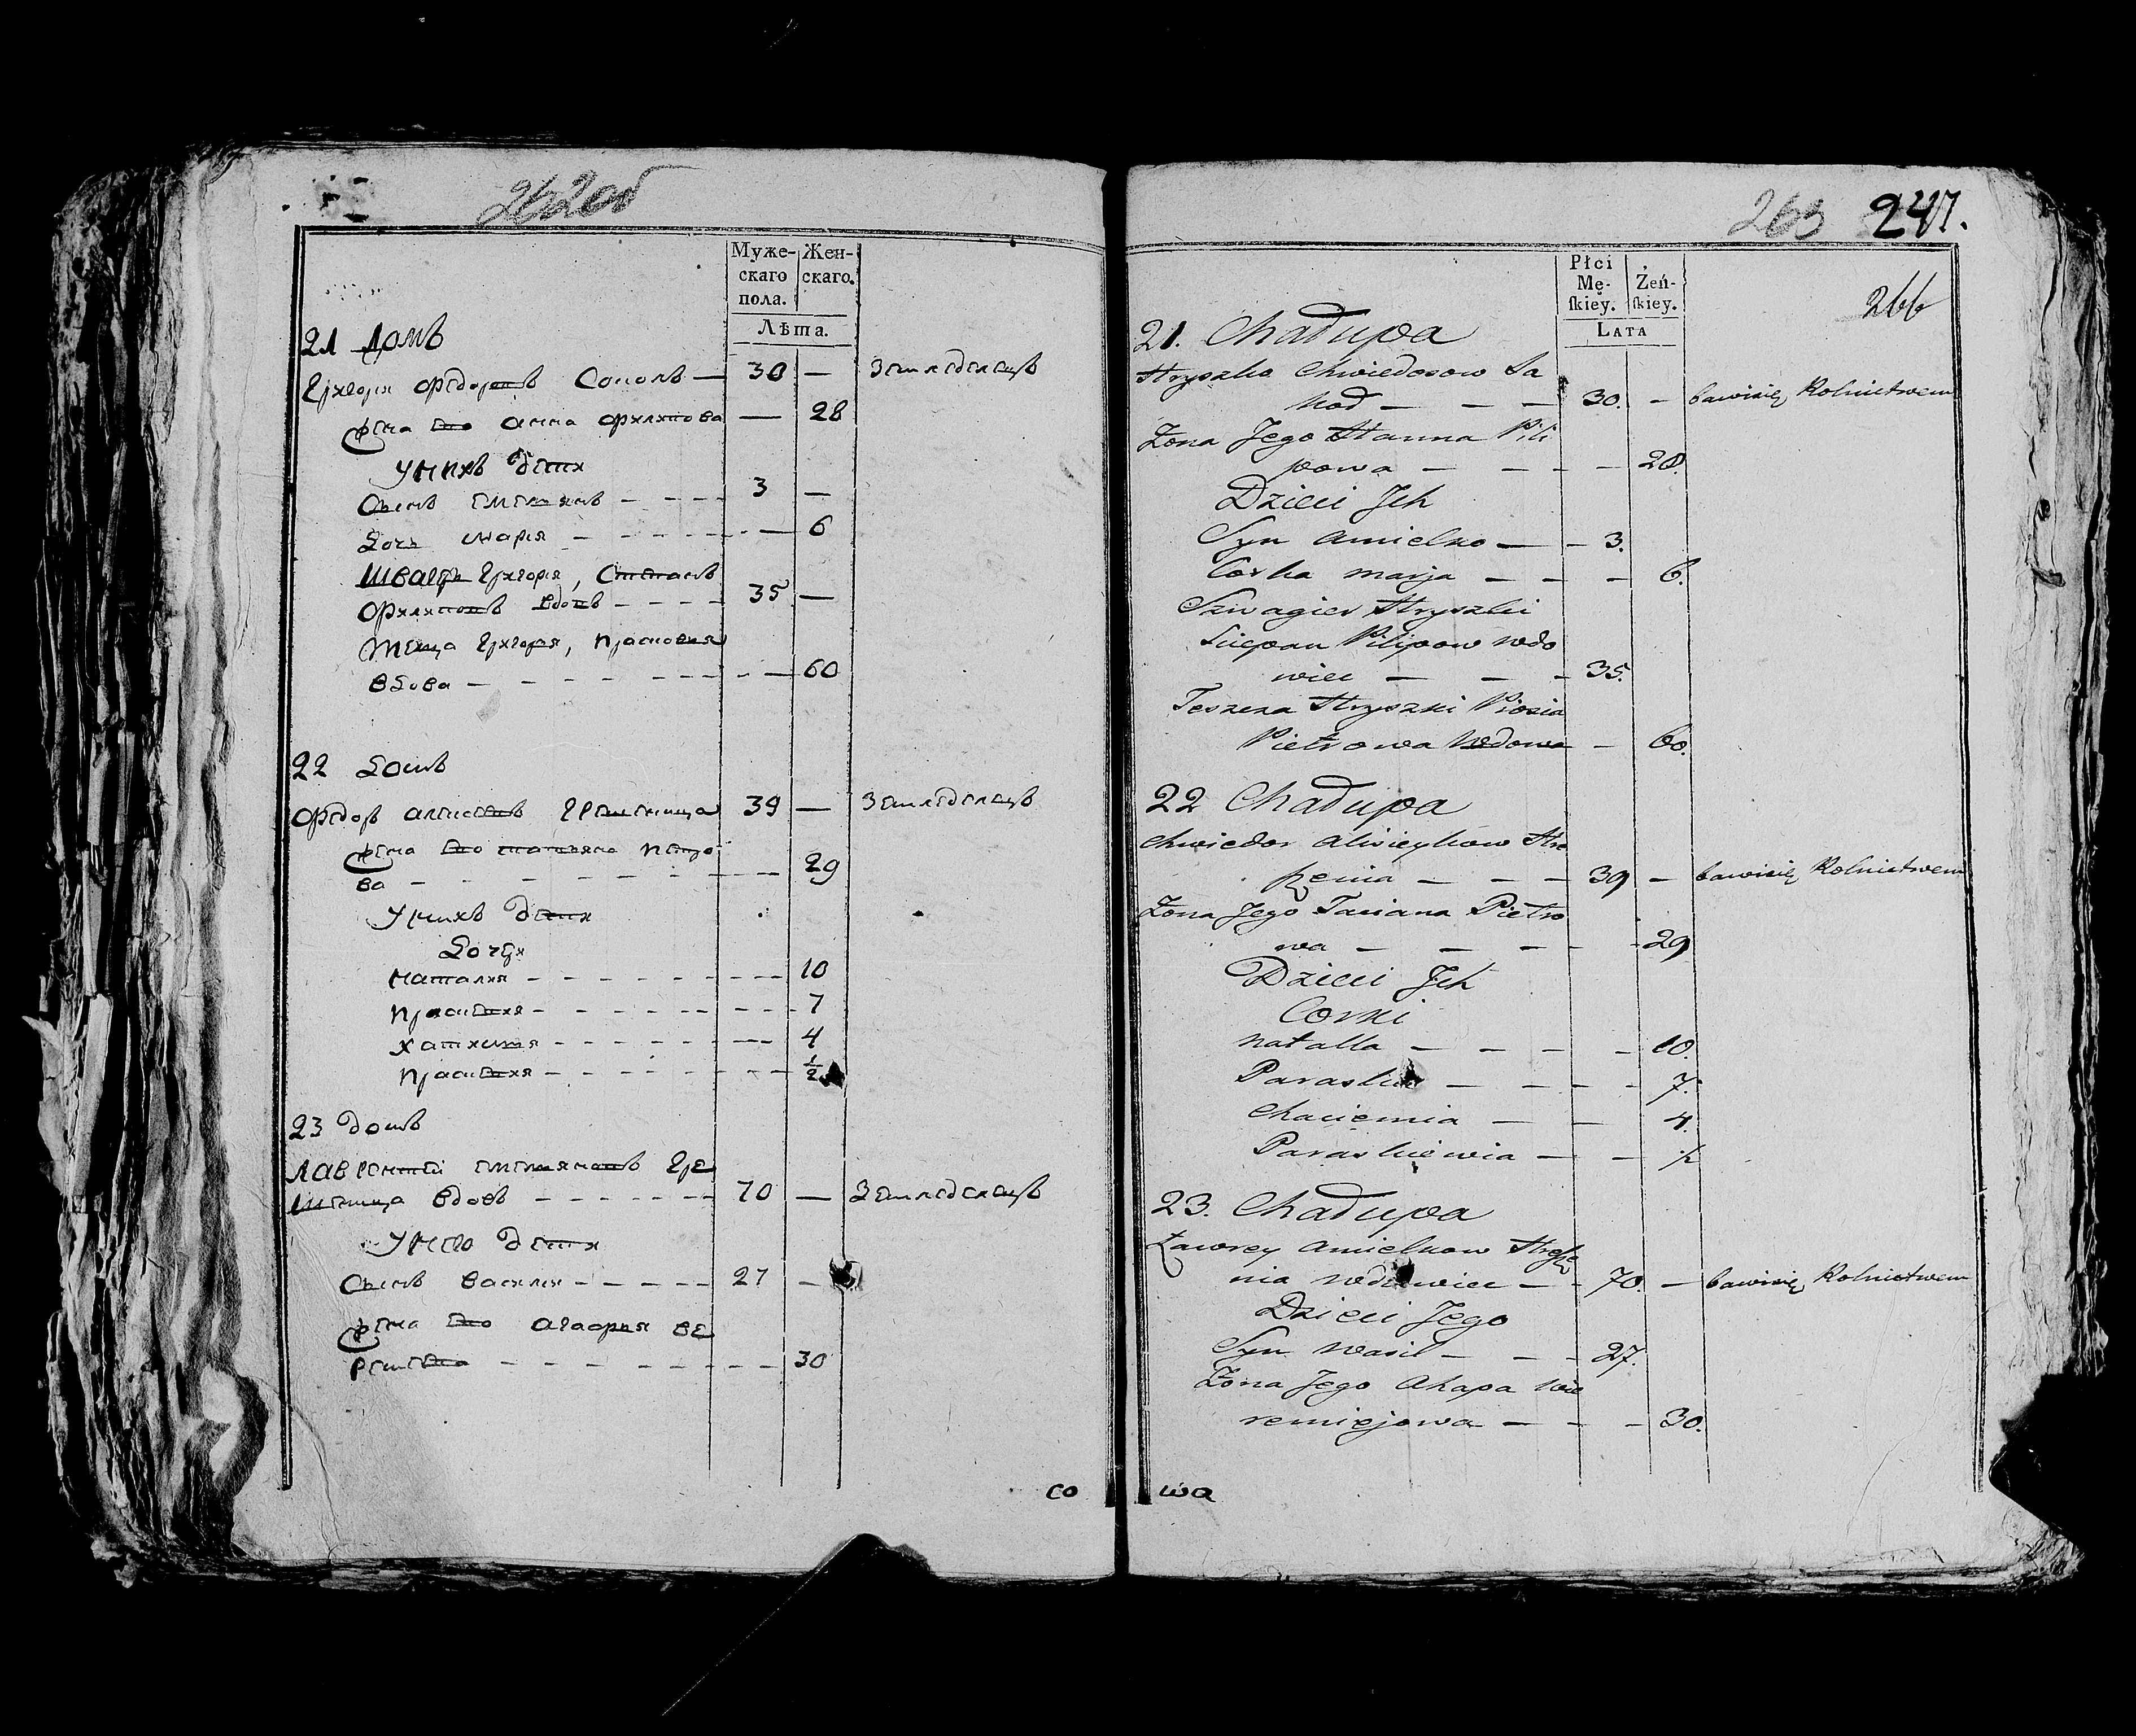 262об
Муже-
скаго
пола.
Жен-
скаго.
Лѣта.
21 домъ
Григори Федоровъ Соколъ — 30 — земледелецъ
жена Его Анна Филипова — 28
У нихъ дети
Сынъ Емельянъ - - - - 3 —
Дочь Марья - - - - - - — 6
Шваеръ Григоря, Степанъ
Филиповъ вдовъ - - - - 35 —
Теща Григоря, Прасковия
вдова — - - - - - - - — 60
22 домъ
Федоръ 39 — земледелецъ
жена Его Татьяна Петро
ва - - - - - - - - — 29
У нихъ дети
Дочери
Наталия - - - - - - - — 10
- - - - - - - - 7
- - - - - - - — 4
- - - - - - - — ½
23 домъ
Лаврентей Емельяновъ Гре
вдовъ - - - - - - 70 — земледелецъ
У него дети
Сынъ Василий - - - - - 27 —
жена Его Агафия Ве
ремеева - - - - - - - - 30
со
263 247.
Płci
Mę-
ſkiey.
Żeń-
ſkiey.
266
LATA
21. Chałupa
Hryszko Chwiedorow Sa
koł — — — 30. — bawisię Rolnictwem
Żona Jego Hanna Pili
powa — — - — 28.
Dzieci Jch
Syn Amielko — - 3.
Corka Marja — — — 6.
Szwagier Hryszki
Sciepan Pilipow wdo
wiec — — - 35.
Teszcza Hryszki
Pietrowa Wdowa — 60.
22 Chałupa
Chwiedor Alixieykow Hre
— — — 39 — bawisię Rolnictwem
Żona Jego Taciana Pietro
wa — — — - - 29
Dzieci Jch
Corki
Natalla — — — — 10.
— — - - 7.
Chaciemia — — 4.
Paraskiewia — — ½
23. Chałupa
Ławrey Amielkow
nia wdowiec — - 70. — bawisię Rolnictwem
Dzieci Jego
Syn Wasil — — - 27.
Żona Jego Ahapa Wie
remiejowa — - - 30.
wa